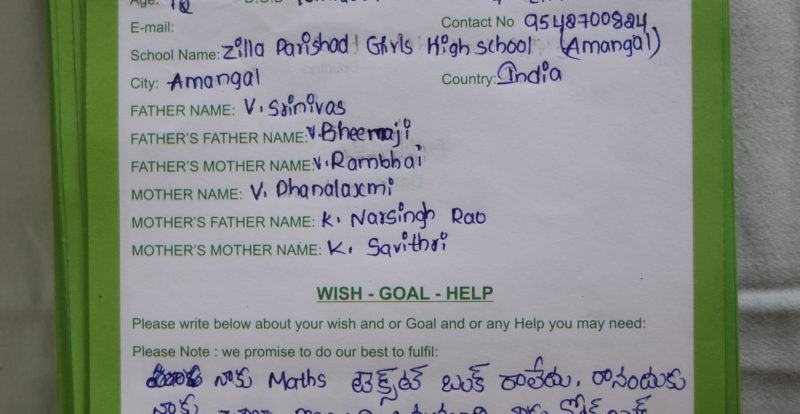 Age: 12
E-mail: Contact No 9548700884
School Name: Zilla Parishad Girls High school (Amangal)
City: Amangal Country: India
FATHER NAME: V. Srinivas
FATHER'S FATHER NAME: V. Bheemaji
FATHER'S MOTHER NAME: V. Rambhai
MOTHER NAME: V. Dhanalaxmi
MOTHER'S FATHER NAME: K. Narsingh Rao
MOTHER'S MOTHER NAME: K. Savithri
WISH - GOAL - HELP
Please write below about your wish and or Goal and or any Help you may need:
Please Note : we promise to do our best to fulfil:
నాకు Maths టెక్స్ట్ బుక్ రాలేదు. రానందుకు
నాకు